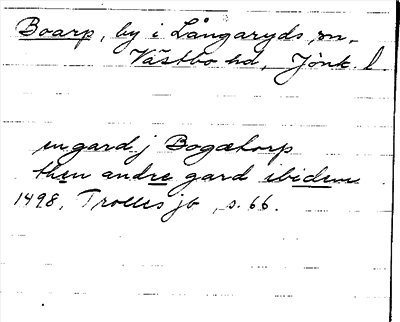 Boarp, by i Långaryds sn,
Västbo hd, Jönk. l
en gard j Bogætorp
then andre gard ibidem
1498. Trolles jb, s. 66.